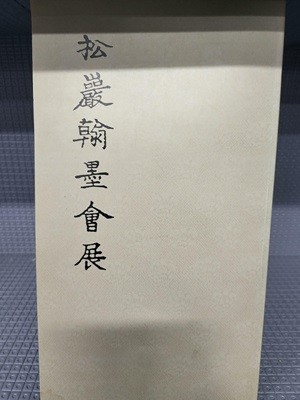 松巖翰墨會展